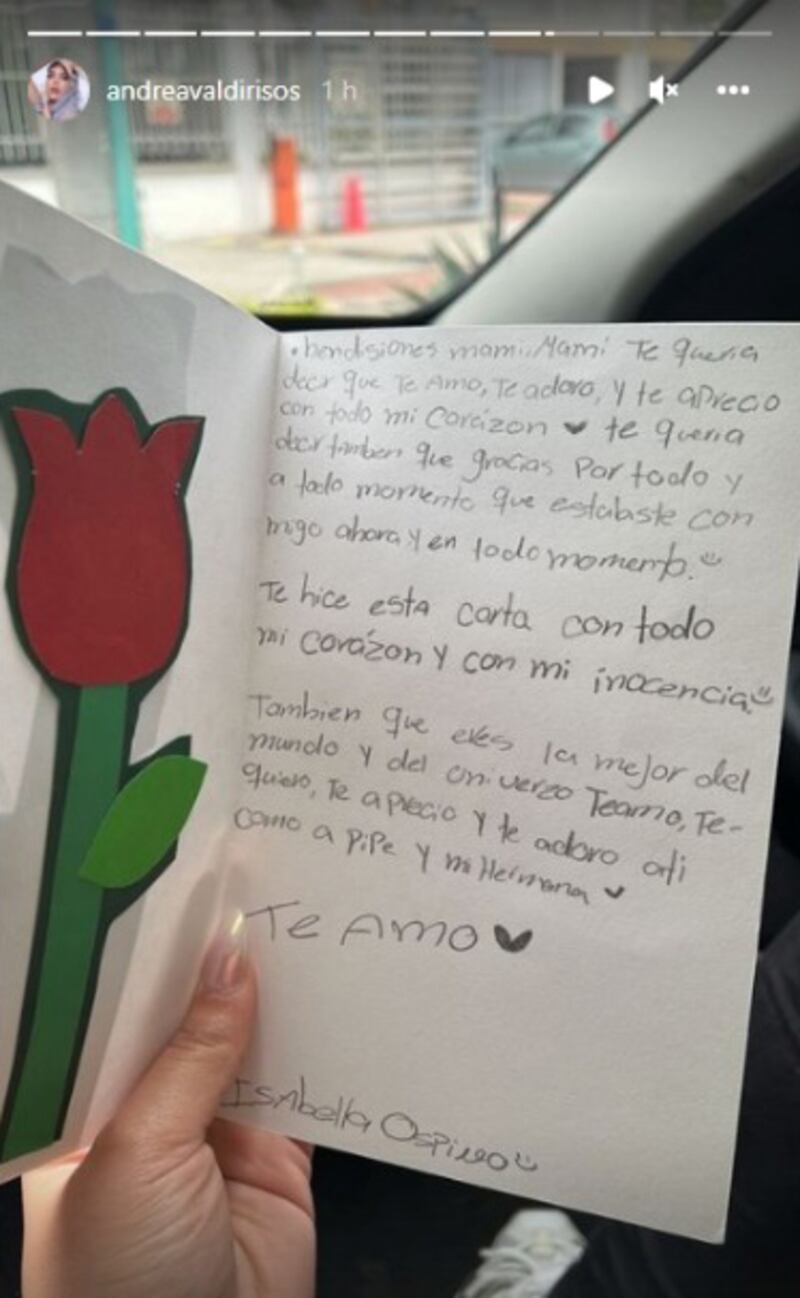 andreavaldirisos 1 h
• bendisiones mami.. Mami Te queria
decir que Te Amo, Te adoro, Y te aprecio
con todo mi Corázon ♥ te queria
decir tambien que gracias Por todo y
a todo momento que estabaste con
migo ahora y en todo momento. ☺
Te hice esta carta con todo
mi Corázon Y con mi inocencia. ☺
Tambien que eres la mejor del
mundo y del univerzo Teamo, Te-
quiero, Te aprecio Y te adoro ati
como a PiPe Y mi Hermana ♥
Te Amo ♥
Isabella Ospino ☺